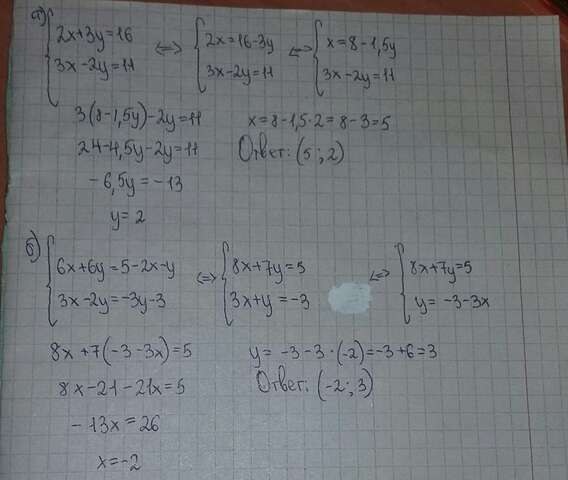 а) { 2x+3y=16 <=> { 2x=16-3y <=> { x=8-1,5y
3x-2y=11 3x-2y=11 3x-2y=11
3(8-1,5y)-2y=11 x=8-1,5·2=8-3=5
24-4,5y-2y=11 Ответ: (5;2)
-6,5y=-13
y=2
б) { 6x+6y=5-2x-y <=> { 8x+7y=5 <=> { 8x+7y=5
3x-2y=-3y-3 3x+y=-3 y=-3-3x
8x+7(-3-3x)=5 y=-3-3·(-2)=-3+6=3
8x-21-21x=5 Ответ: (-2;3)
-13x=26
x=-2